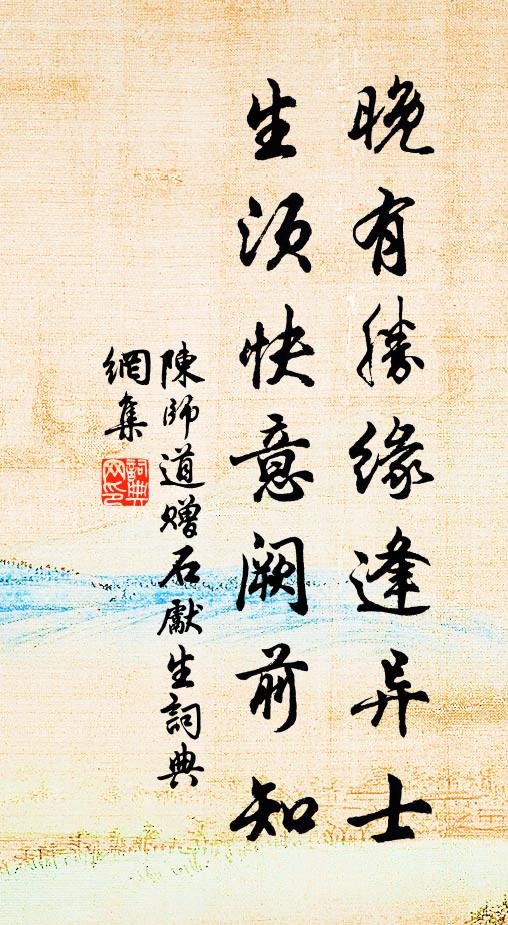 晚有勝緣逢异士
生須快意阙前知
陳師道贈石獻生詞典
網集
詞典
网印